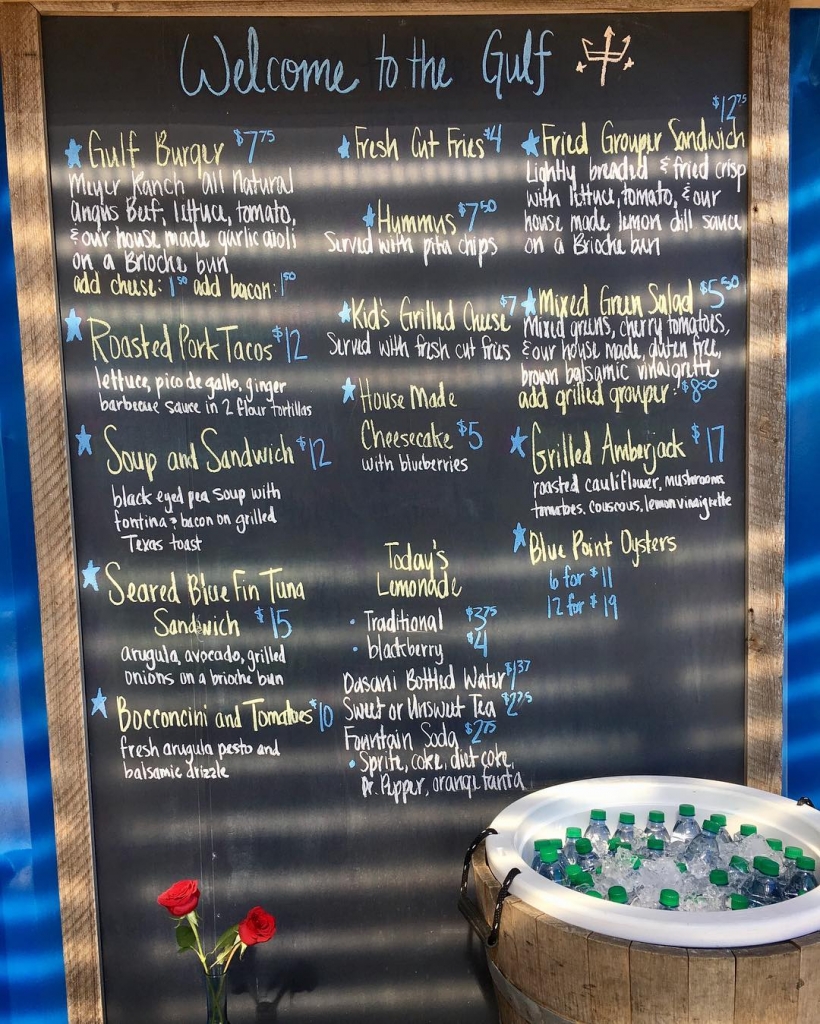 Welcome to the Gulf
Gulf Burger $7.75
Meyer Ranch all Natural
Angus Beef, lettuce, tomato,
& our house made garlic aioli
on a Brioche bun
add cheese: 1.50 add bacon: 1.50
Roasted Pork Tacos $12
lettuce, pico de gallo, ginger
barbecue sauce in 2 flour tortillas
Soup and Sandwich $12
black eyed pea soup with
fontina & bacon on grilled
Texas toast
Seared Blue Fin Tuna
Sandwich $15
arugula, avocado, grilled
onions on a brioche bun
Bocconcini and Tomatoes $10
fresh arugula pesto and
balsamic drizzle
Fresh Cut Fries $4
Hummus $7.50
Served with pita chips
Kid's Grilled Cheese $7
Served with fresh cut fries
House Made
Cheesecake $5
with blueberries
Today's
Lemonade
• Traditional $3.75
• blackberry $4
Dasani Bottled Water $1.37
Sweet or Unsweet Tea $2.75
Fountain Soda $2.75
• Sprite, coke, diet coke,
Dr. Pepper, orange fanta
$12.75
Fried Grouper Sandwich
Lightly breaded & fried crisp
with lettuce, tomato, & our
house made lemon dill sauce
on a Brioche bun
Mixed Green Salad $5.50
Mixed greens, cherry tomatoes,
& our house made, gluten free,
brown balsamic vinaigrette
add grilled grouper: $8.50
Grilled Amberjack $17
roasted cauliflower, mushrooms
tomatoes, couscous, lemon vinaigrette
Blue Point Oysters
6 for $11
12 for $19